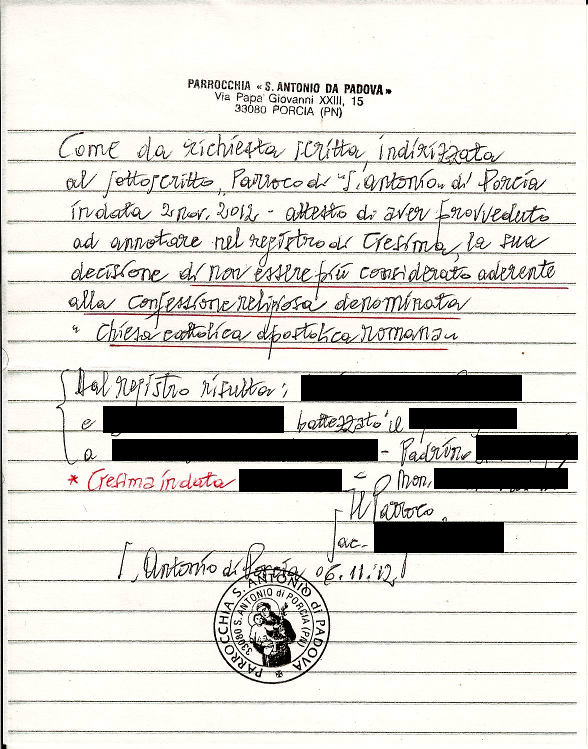 PARROCCHIA « S. ANTONIO DA PADOVA »
Via Papa' Giovanni XXIII, 15
33080 PORCIA (PN)
Come da richiesta scritta, indirizzata
al sottoscritto, Parroco di "S. Antonio" di Porcia
in data 2 nov. 2012 - attesto di aver provveduto
ad annotare nel registro di Cresima, la sua
decisione di non essere più considerato aderente
alla confessione religiosa denominata
" chiesa cattolica apostolica romana "
Dal registro risulta :
e battezzato il
a - Padrino
* Cresima in data - mon.
Il Parroco
sac.
S. Antonio di Porcia 06.11.12
PARROCCHIA S. ANTONIO di PADOVA
33080 S. ANTONIO di PORCIA (PN)